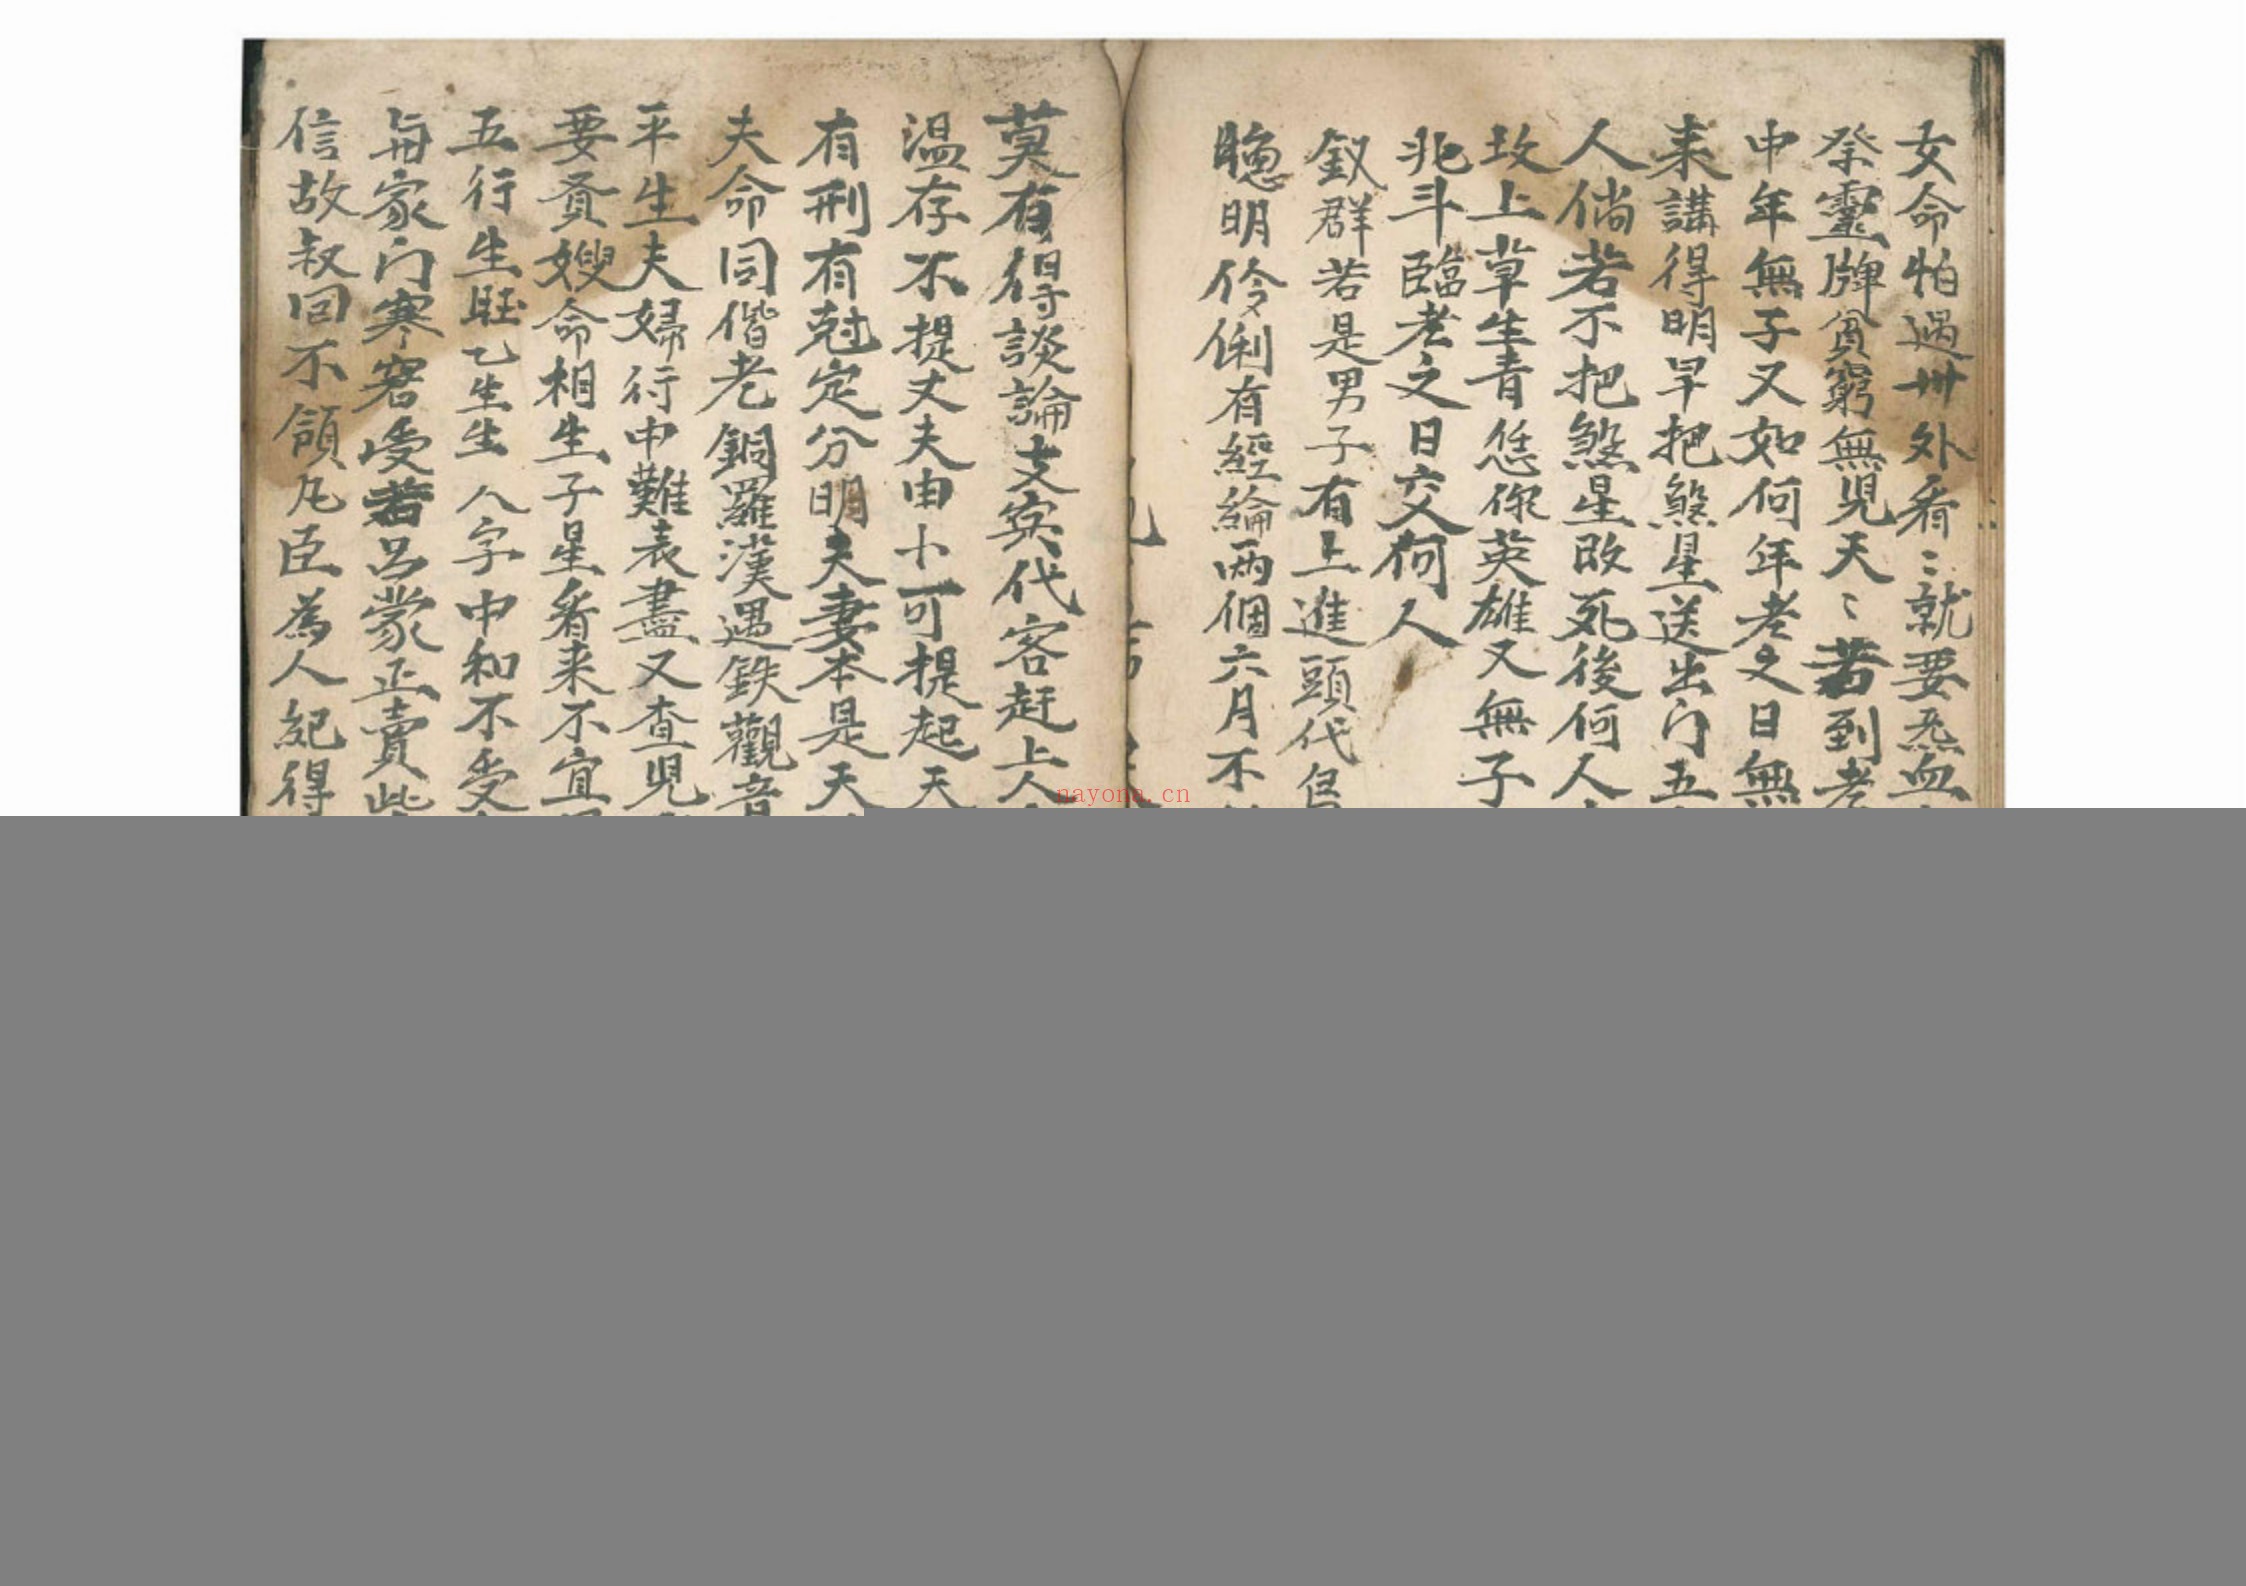 女命怕遇卅外看〻就要忌血
祭靈牌貧窮無兒天〻若到老
中年無子又如何年老之日無
来講得明早把煞星送出门五
人倘若不把煞星改死後何人
坟上草生青恁你英雄又無子
北斗臨老之日交何人
釵群若是男子有上進頭代
聰明伶俐有經綸兩個六月不
莫有得談論支宾代客赶上人
温存不提丈夫由卜可提起天
有刑有尅定分明夫妻本是天
夫命同偕老銅羅漢遇鉄觀音
平生夫婦行中難表盡又查兒
要責嫂命相生子星看来不宜
五行生旺乙生生八字中和不受
毎家门寒窘受若呂蒙正賣此
信故叔回不領凡臣為人紀得
nayona.cn